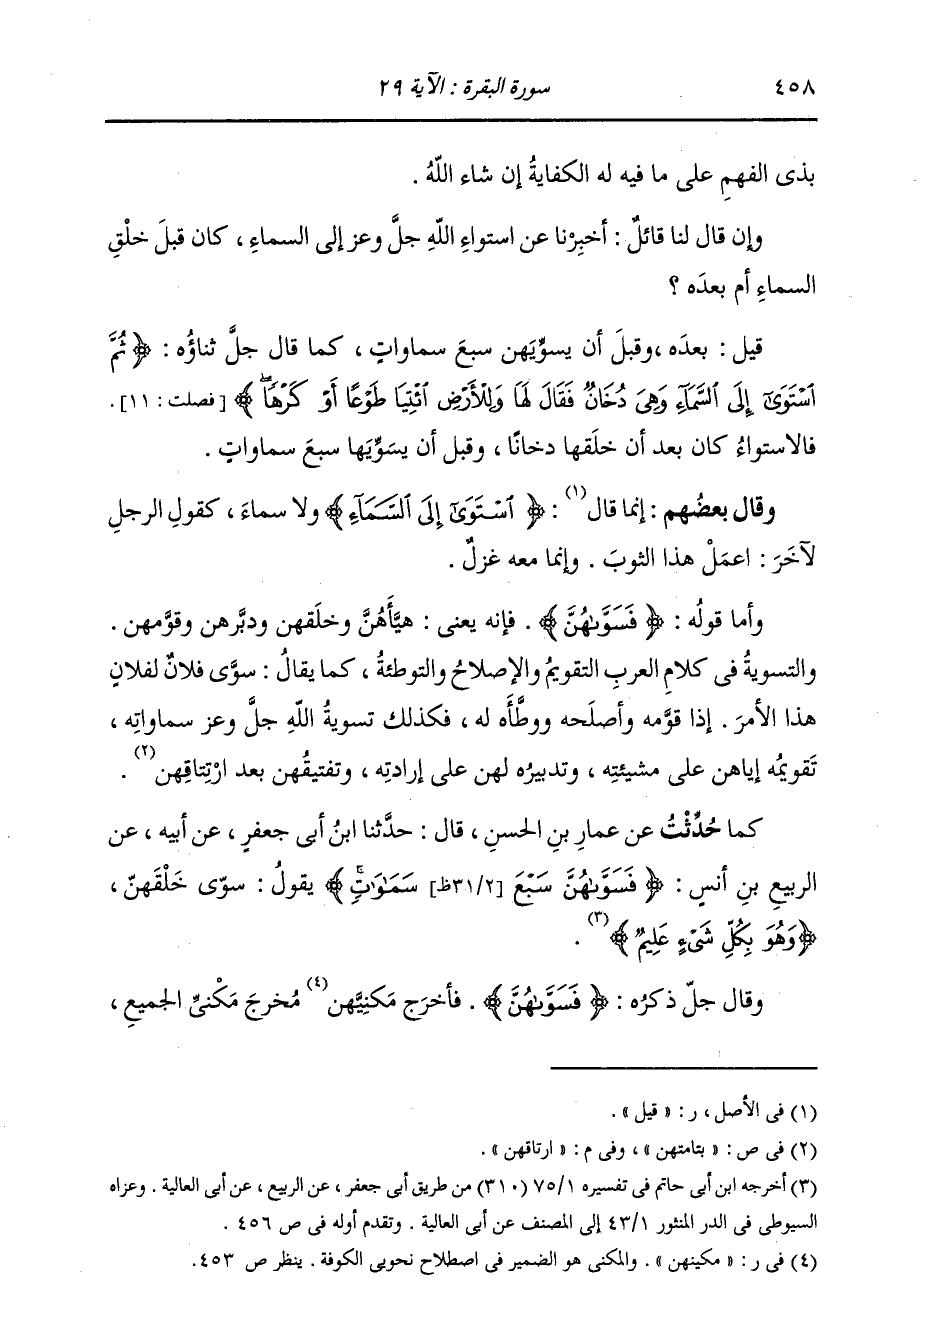 ٤٥٨
سورة البقرة : الآية ٢٩
بذى الفهمِ على ما فيه له الكفايةُ إن شاء اللَّهُ .
وإن قال لنا قائلٌ : أخبِرْنا عن استواءِ اللَّهِ جلَّ وعز إلى السماءِ ، كان قبلَ خلْقِ
السماءِ أم بعدَه ؟
قيل : بعدَه ،وقبلَ أن يسوِّيَهن سبعَ سماواتٍ ، كما قال جلَّ ثناؤُه : ﴿ ثُمَّ
ٱسْتَوَىٰٓ إِلَى ٱلسَّمَآءِ وَهِىَ دُخَانٌ فَقَالَ لَهَا وَلِلْأَرْضِ ٱئْتِيَا طَوْعًا أَوْ كَرْهًا ۖ ﴾ [فصلت : ١١] .
فالاستواءُ كان بعد أن خلَقها دخانًا ، وقبل أن يسَوِّيَها سبعَ سماواتٍ .
وقال بعضُهم : إنما قال(١) : ﴿ ٱسْتَوَىٰٓ إِلَى ٱلسَّمَآءِ ﴾ ولا سماءَ ، كقولِ الرجلِ
لآخَرَ : اعمَلْ هذا الثوبَ . وإنما معه غزلٌ .
وأما قولُه : ﴿ فَسَوَّىٰهُنَّ ﴾ . فإنه يعنى : هيَّأَهُنَّ وخلَقهن ودبَّرهن وقوَّمهن .
والتسويةُ فى كلامِ العربِ التقويمُ والإصلاحُ والتوطئةُ ، كما يقالُ : سوَّى فلانٌ لفلانٍ
هذا الأمرَ . إذا قوَّمه وأصلَحه ووطَّأَه له ، فكذلك تسويةُ اللَّهِ جلَّ وعز سماواتِه ،
تَقويمُه إياهن على مشيئتِه ، وتدبيرُه لهن على إرادتِه ، وتفتيقُهن بعد ارْتِتاقِهن(٢) .
كما حُدِّثْتُ عن عمارِ بنِ الحسنِ ، قال : حدَّثنا ابنُ أبى جعفرٍ ، عن أبيه ، عن
الربيعِ بنِ أنسٍ : ﴿ فَسَوَّىٰهُنَّ سَبْعَ [٣١/٢ظ] سَمَٰوَٰتٍ ۚ ﴾ يقولُ : سوّى خَلْقَهنّ ،
﴿وَهُوَ بِكُلِّ شَىْءٍ عَلِيمٌ ﴾(٣) .
وقال جلّ ذكرُه : ﴿ فَسَوَّىٰهُنَّ ﴾ . فأخرَج مَكنِيَّهن(٤) مُخرجَ مَكْنىِّ الجميعِ ،
(١) فى الأصل ، ر : « قيل » .
(٢) فى ص : « بتامتهن » ، وفى م : « ارتاقهن » .
(٣) أخرجه ابن أبى حاتم فى تفسيره ٧٥/١ (٣١٠) من طريق أبى جعفر ، عن الربيع ، عن أبى العالية . وعزاه
السيوطى فى الدر المنثور ٤٣/١ إلى المصنف عن أبى العالية . وتقدم أوله فى ص ٤٥٦ .
(٤) فى ر : « مكينهن » . والمكنى هو الضمير فى اصطلاح نحويى الكوفة . ينظر ص ٤٥٣ .